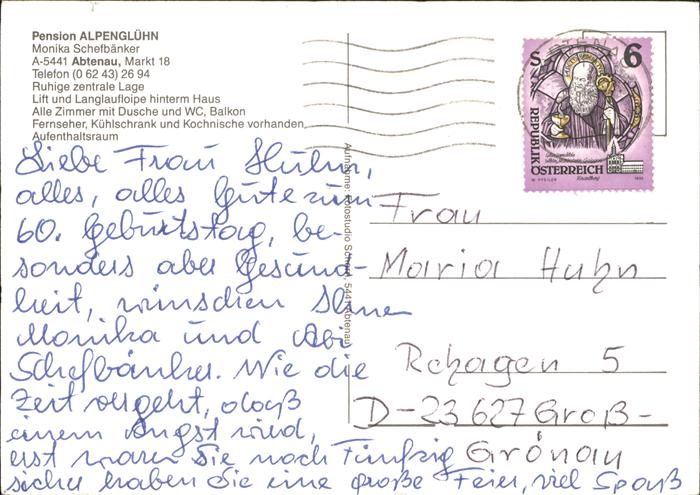 Pension ALPENGLÜHN
Monika Schefbänker
A-5441 Abtenau, Markt 18
Telefon (0 62 43) 26 94
Ruhige zentrale Lage
Lift und Langlaufloipe hinterm Haus
Alle Zimmer mit Dusche und WC, Balkon
Fernseher, Kühlschrank und Kochnische vorhanden
Aufenthaltsraum
Liebe Frau Huhn,
alles, alles Gute zum
60. Geburtstag, be-
sonders aber Gesund-
heit, wünschen Ihnen
Monika und
Schefbänker. Wie die
Zeit vergeht, daß
einem Angst wird,
erst waren Sie noch Fünfzig
sicher haben Sie eine große Feier, viel Spaß
Aufnahme: Fotostudio 5441 Abtenau
S 6
REPUBLIK
ÖSTERREICH
Frau
Maria Huhn
Rehagen 5
D-23627 Groß-
Grönau